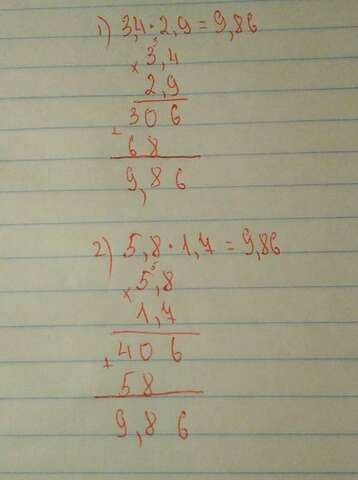 1) 3,4 · 2,9 = 9,86
3
× 3,4
2,9
306
+
68
9,86
2) 5,8 · 1,7 = 9,86
5
× 5,8
1,7
+ 406
58
9,86